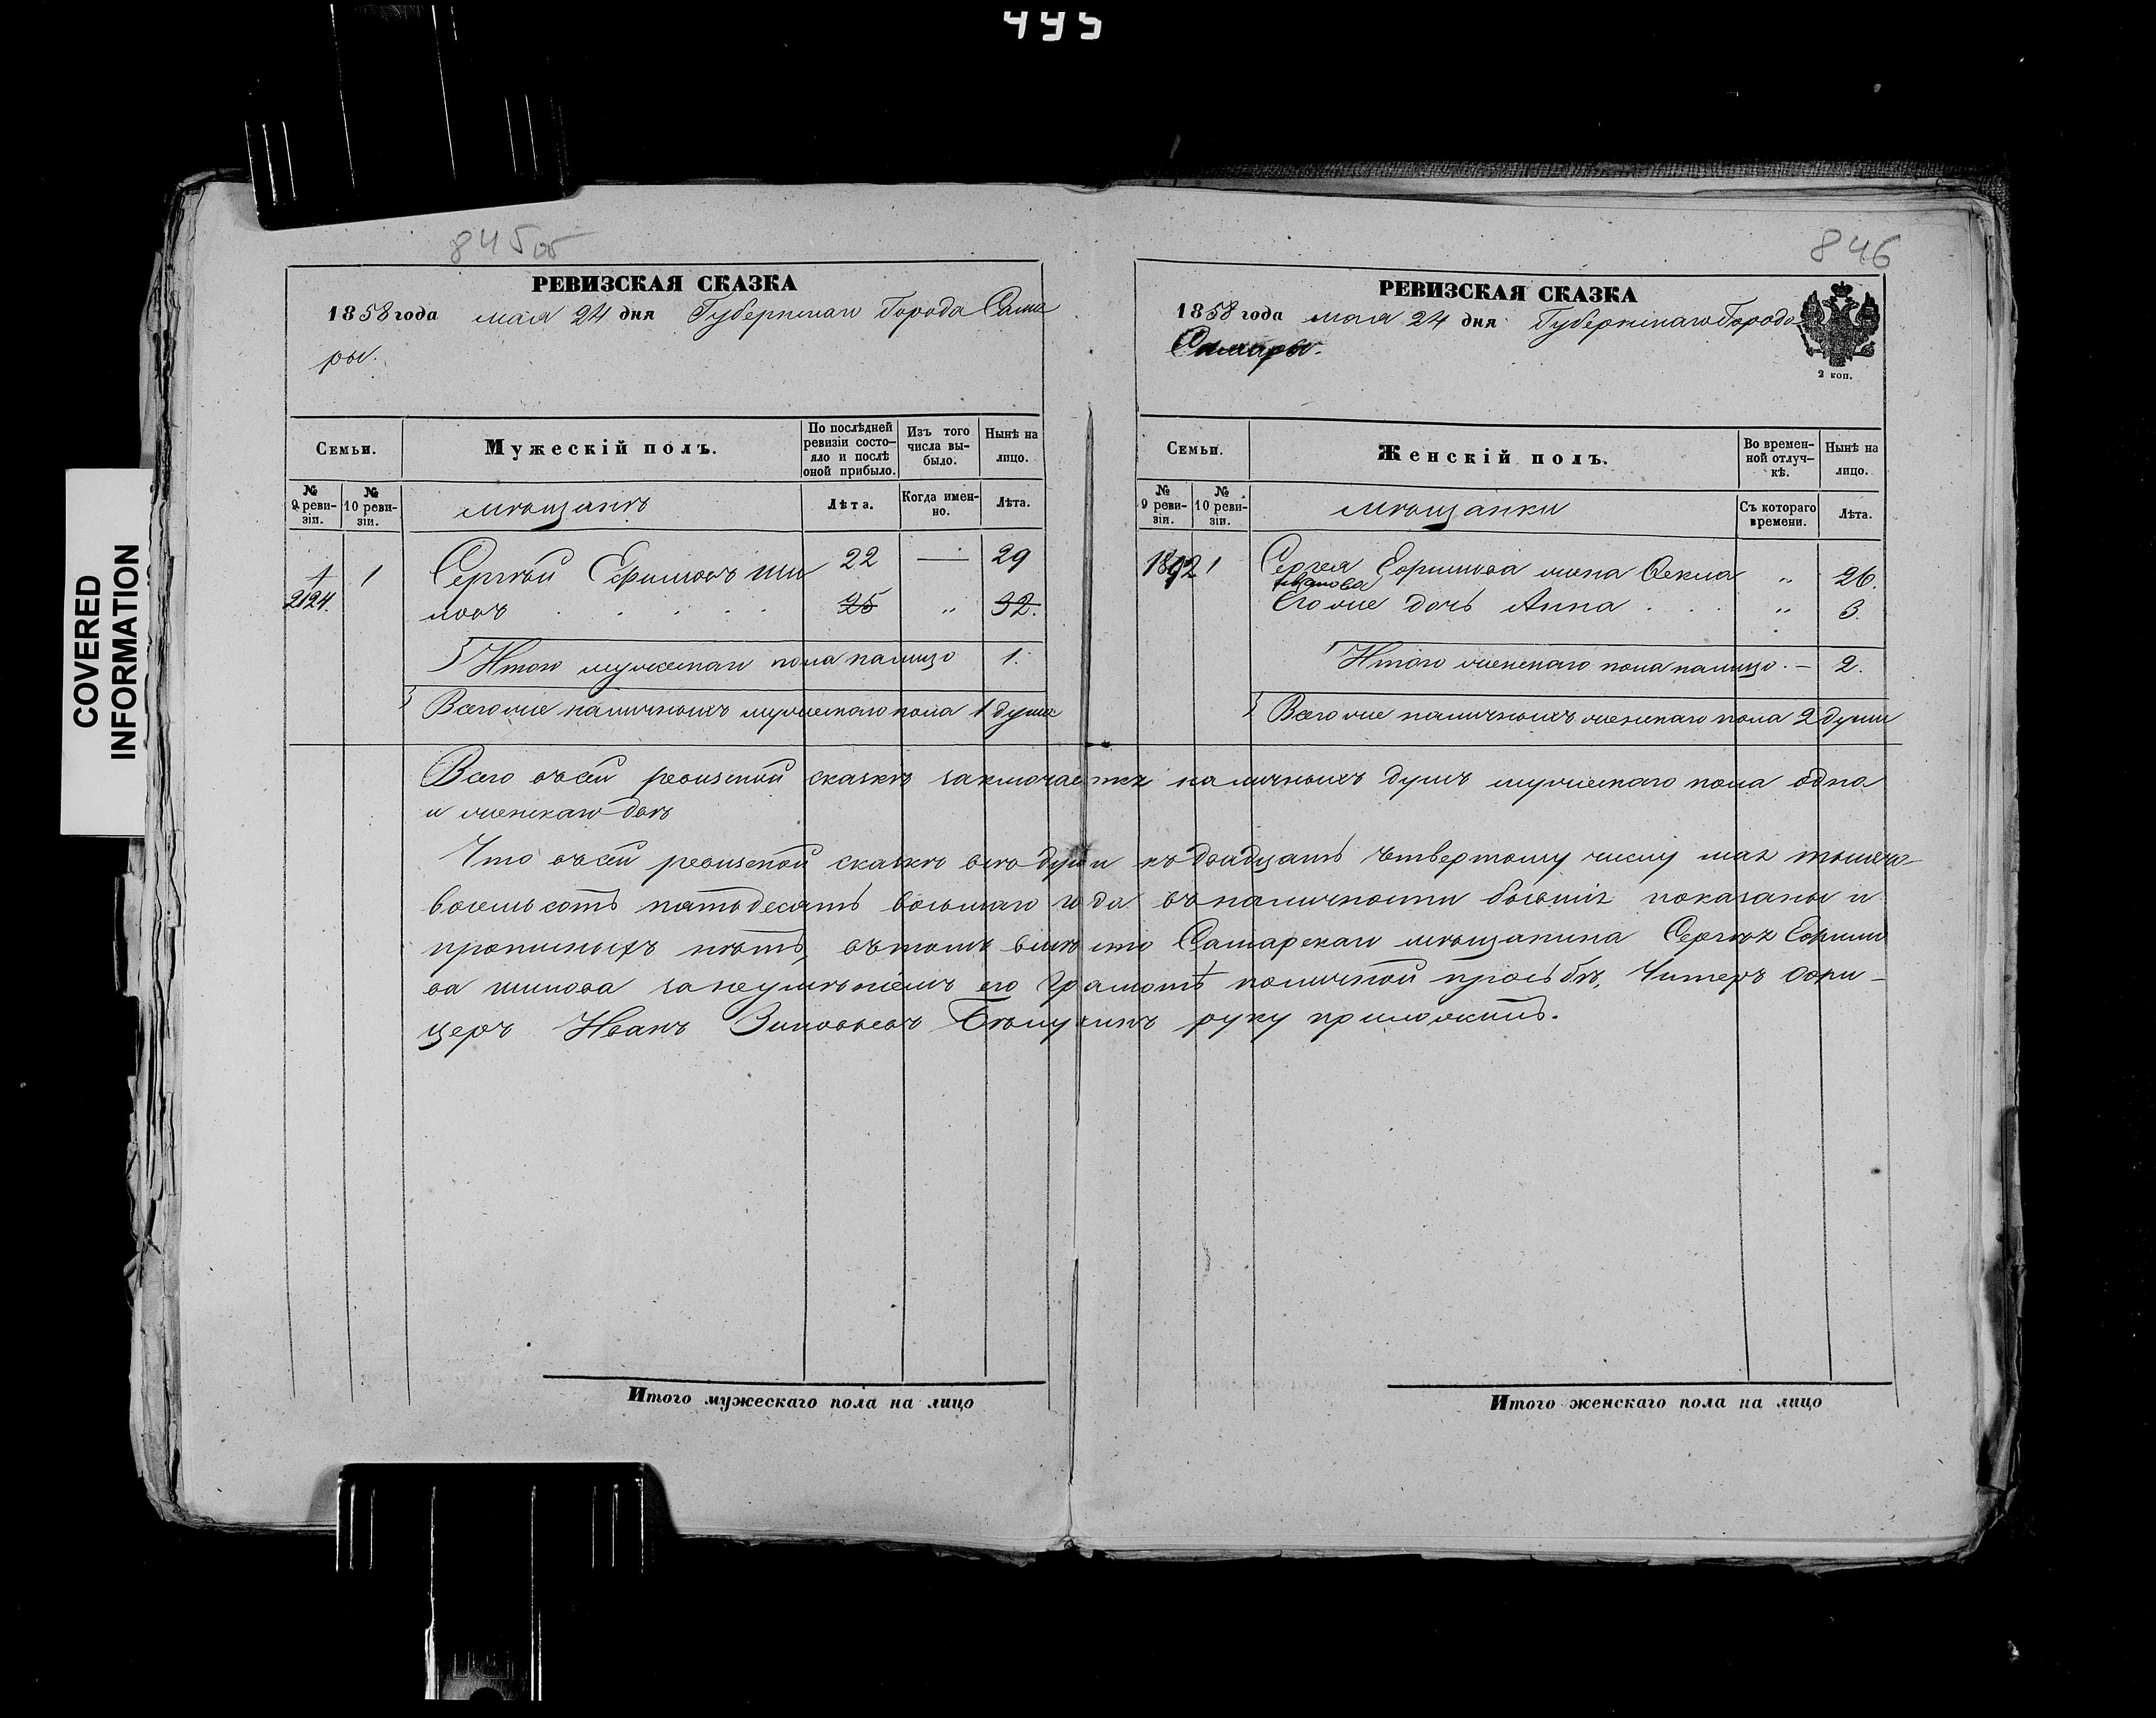 495
COVERED
INFORMATION
845 об
РЕВИЗСКАЯ СКАЗКА
1858 года мая 24 дня Губернскаго Города Сама
ры.
Семьи.
Мужескій полъ.
По послѣдней ревизіи состо-
яло и послѣ оной прибыло.
Изъ того числа вы-
было.
Нынѣ на лицо.
№ 9 реви-
зіи.
№ 10 реви-
зіи.
мѣщанъ
Лѣта.
Когда имен-
но.
Лѣта.
1 1 Сергѣй Ефимовъ Ши 22 — 29
2124. ловъ 25 „ 32.
Итого мужескаго пола налицо 1.
Всего же наличныхъ мужескаго пола 1 душа
846
РЕВИЗСКАЯ СКАЗКА
1858 года мая 24 дня Губернскаго Города
Самары.
2 коп.
Семьи.
Женскій полъ.
Во времен-
ной отлуч-
кѣ.
Нынѣ на лицо.
№ 9 реви-
зіи.
№ 10 реви-
зіи.
мѣщанки
Съ котораго времени.
Лѣта.
1 Сергея Ефимова жена Фекла „ 26.
Иванова
Его же дочь Анна „ 3.
Итого женскаго пола налицо. — 2.
Всего же наличныхъ женскаго пола 2 души
Всего въ сей ревизской сказкѣ заключается наличныхъ душъ мужескаго пола одна
и женскаго двѣ
Что въ сей ревизской сказкѣ всѣ души къ двадцать четвертому числу мая тысяча
восемьсотъ пятьдесятъ восьмаго года въ наличности бывшія показаны и
прописныхъ нѣтъ, въ томъ вмѣсто Самарскаго мѣщанина Сергѣя Ефимо
ва Шилова за неумѣніемъ его Грамотѣ по личной просьбѣ, Унтеръ Офи-
церъ Иванъ Зиновьевъ руку приложилъ.
Итого мужескаго пола на лицо
Итого женскаго пола на лицо